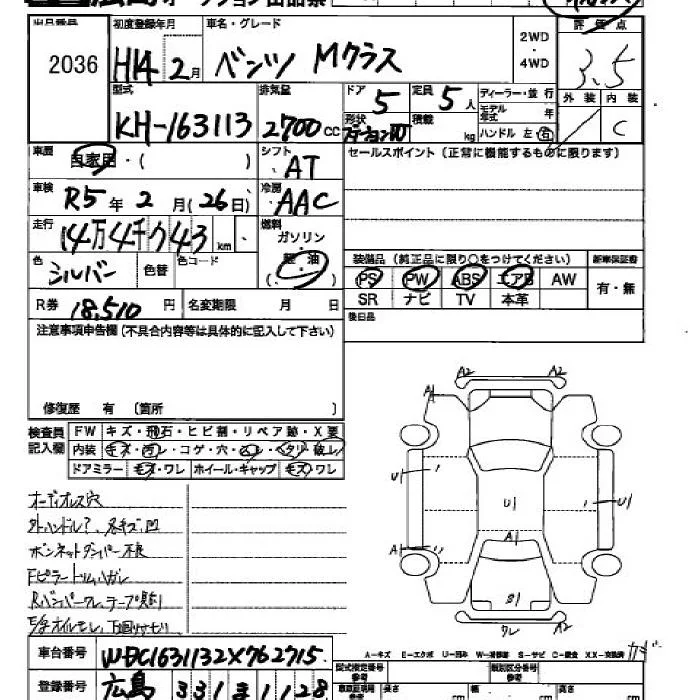 広島オークション出品票
出品番号 初度登録年月 車名・グレード 評価点
2036 H14 2月 ベンツ Mクラス 2WD・4WD 3.5
型式 排気量 ドア 5 定員 5人 ディーラー・並行 外装 内装
KH-163113 2700cc 形状 積載 kg モデル年式 年 C
ハンドル 左 右
車歴 自家用・( ) シフト AT セールスポイント(正常に機能するものに限ります)
車検 R5年 2月(26日) 冷房 AAC
走行 14万4千743km 燃料 ガソリン・軽油
色 シルバー 色替 色コード ( )
装備品(純正品に限り○をつけてください) 新車保証書
PS PW ABS エアB AW 有・無
SR ナビ TV 本革
R券 18,510円 名変期限 月 日
後日品
注意事項申告欄(不具合内容等は具体的に記入して下さい)
修復歴 有 (箇所 )
検査員記入欄 FW キズ・飛石・ヒビ割・リペア跡・X要
内装
ドアミラー キズ・ワレ ホイール・キャップ キズ・ワレ
A1 A2 A2
U1 U1 U1
A1 A1
S1
ワレ A2
オーディオレス穴
ボンネットダンパー不良
Fピラートリムハガレ
A-キズ E-エクボ U-凹み W-補修跡 S-サビ C-腐食 XX-交換済
カギ
車台番号 WDC1631132X762715
型式指定番号 類別区分番号
登録番号 広島 331 ま 1128 長さ cm